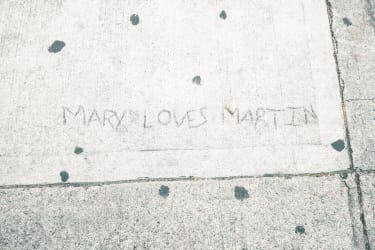 MARY LOVES MARTIN